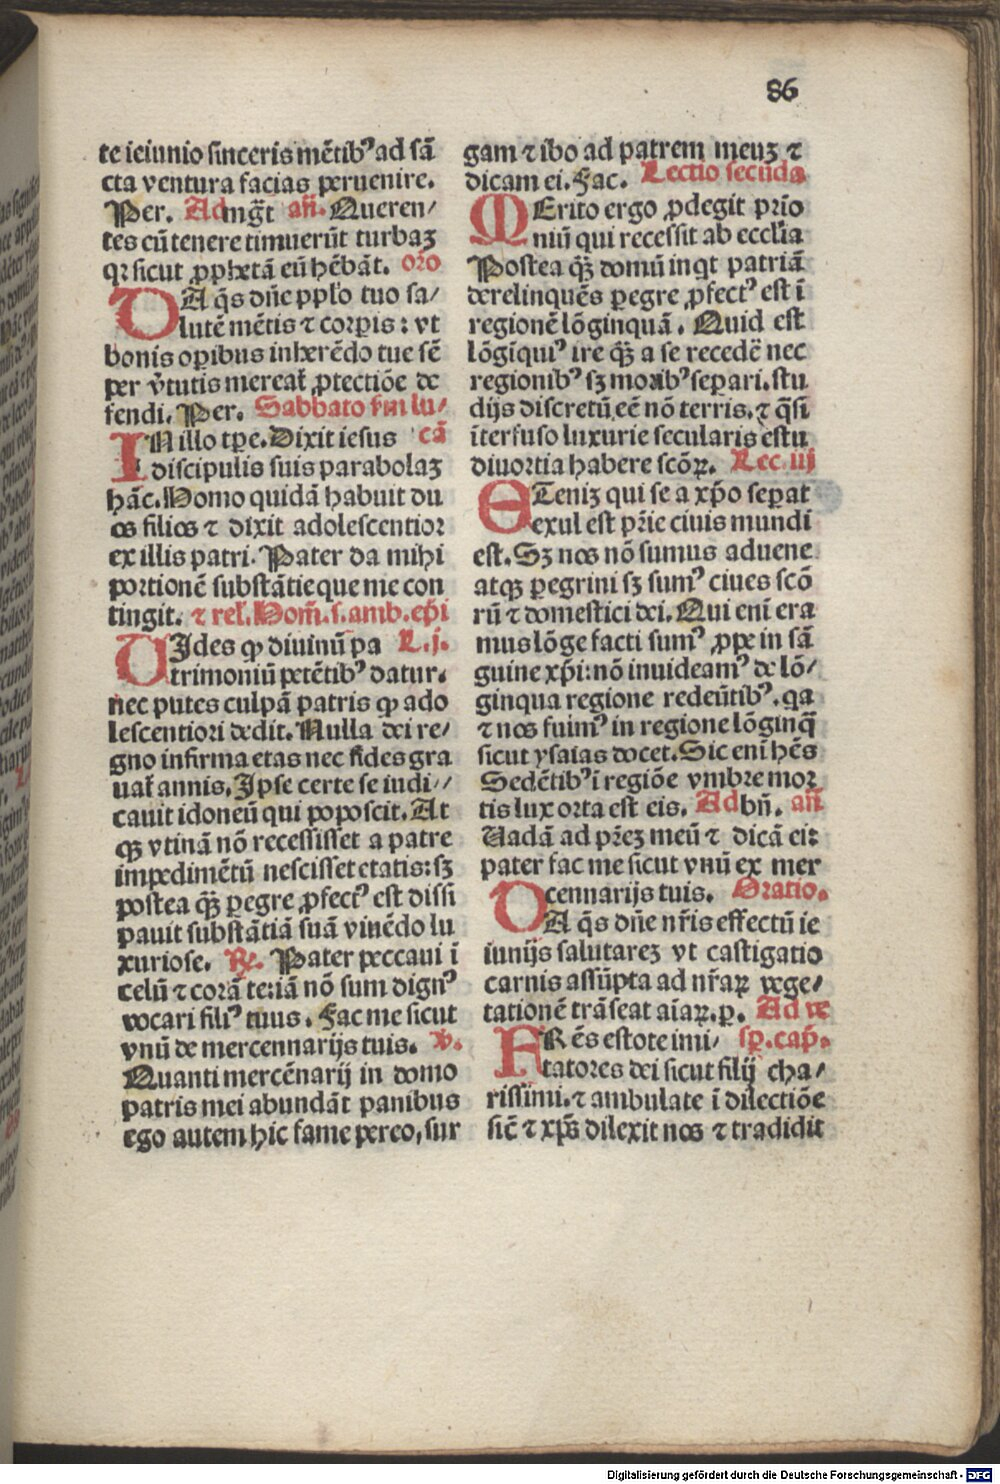 86
te ieiunio sinceris mẽtibꝰ ad sã
cta ventura facias peruenire.
Per. Ad mg̃t añ. Queren⸗
tes cũ tenere timuerũt turbaꝫ
qꝛ sicut ꝓphetã eũ hẽbãt. oro
DA q̃s dñe pplo tuo sa⸗
lutẽ mẽtis ⁊ corꝑis : vt
bonis oꝑibus inherẽdo tue sẽ
per v̓tutis mereat̃ ꝓtectiõe de
fendi. Per. Sabbato
IN illo tꝑe. Dixit iesus
discipulis suis parabolaꝫ
hãc. Homo quidã habuit du
os filios ⁊ dixit adolescentior
ex illis patri. Pater da mihi
portionẽ substãtie que me con
tingit. ⁊ rel̃. Hom̃. s. amb. ep̃i
VIdes ꝙ diuinũ pa L. j.
trimoniũ petẽtibꝰ datur.
nec putes culpã patris ꝙ ado
lescentiori dedit. Nulla dei re⸗
gno infirma etas nec fides gra
uat̃ annis. Ipse certe se iudi⸗
cauit idoneũ qui poposcit. At
qꝫ vtinã nõ recessisset a patre
impedimẽtũ nescisset etatis: sꝫ
postea q̃ꝫ ꝑegre ꝓfectꝰ est dissi
pauit substãtiã suã viuẽdo lu
xuriose. ℞. Pater peccaui ĩ
celũ ⁊ corã te: iã nõ sum dignꝰ
vocari filiꝰ tuus. Fac me sicut
vnũ de mercennarijs tuis. ℣.
Quanti mercẽnarij in domo
patris mei abundãt panibus
ego autem hic fame pereo, sur
gam ⁊ ibo ad patrem meuꝫ ⁊
dicam ei. Fac. Lectio secũda
MErito ergo ꝓdegit prĩo
niũ qui recessit ab ecclĩa
Postea q̃ꝫ domũ inqt patriã
derelinquẽs ꝑegre ꝓfectꝰ est ĩ
regionẽ lõginquã. Quid est
lõgĩquiꝰ ire q̃ꝫ a se recedẽ nec
regionibꝰ sꝫ moribꝰ seꝑari. stu
dijs discretũ eẽ nõ terris. ⁊ q̃si
ĩterfuso luxurie secularis estu
diuortia habere scõꝝ. Lec. iij
ETeniꝫ qui se a xp̃o seꝑat
exul est pr̃ie ciuis mundi
est. Sꝫ nos nõ sumus aduene
atqꝫ ꝑegrini sꝫ sumꝰ ciues scõ
rũ ⁊ domestici dei. Qui enĩ era
mus lõge facti sumꝰ ꝓpe in sã
guine xp̃i: nõ inuideamꝰ de lõ⸗
ginqua regione redeũtibꝰ. qa
⁊ nos fuimꝰ in regione lõginq̃
sicut ysaias docet. Sic enĩ hẽs
Sedẽtibꝰ ĩ regiõe vmbre moꝛ
tis lux orta est eis. Ad bñ. añ
Vadã ad pr̃eꝫ meũ ⁊ dicã ei:
pater fac me sicut vnũ ex mer
cennarijs tuis. Oratio.
DA q̃s dñe nr̃is effectũ ie
iunijs salutareꝫ vt castigatio
carnis assũpta ad nr̃aꝝ vege⸗
tationẽ trãseat aĩaꝝ. ꝑ. Ad ve
FRẽs estote imi⸗ sp̃. cap̃.
tatores dei sicut filij cha⸗
rissimi. ⁊ ambulate ĩ dilectiõe
siẽ ⁊ xp̃s dilexit nos ⁊ tradidit
Digitalisierung gefördert durch die Deutsche Forschungsgemeinschaft - DFG